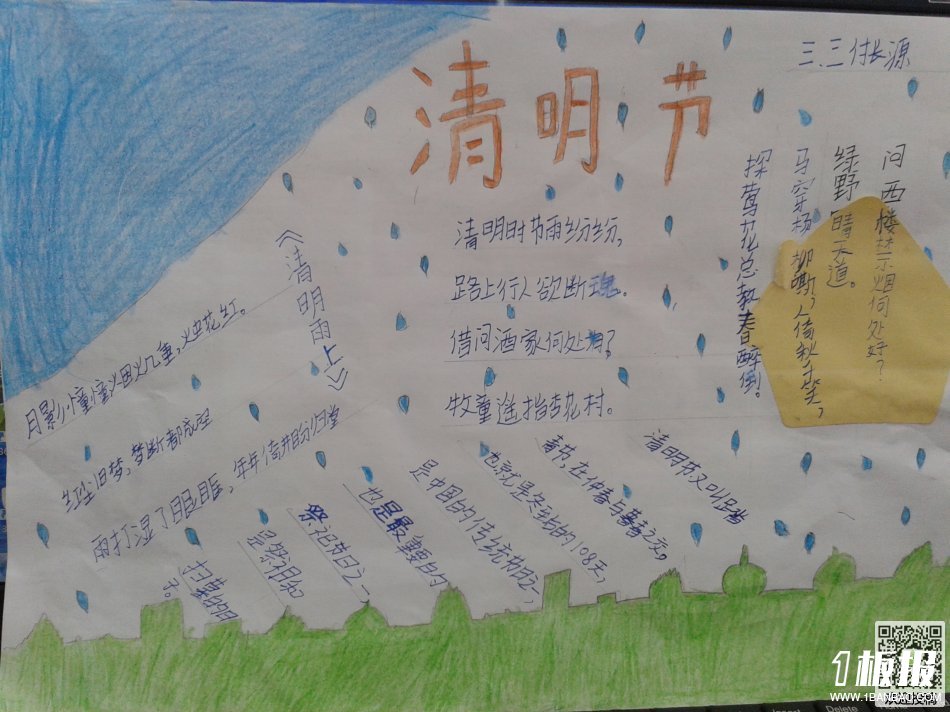 清明节
三、三 付长源
清明时节雨纷纷，
路上行人欲断魂。
借问酒家何处有？
牧童遥指杏花村。
问西楼禁烟何处好？
绿野晴天道。
马穿杨柳嘶，人倚秋千笑，
探莺花总教春醉倒。
《清明雨上》
月影憧憧，烟火几重，烛花红。
红尘旧梦，梦断都成空
雨打湿了眼眶，年年倚井盼归堂
清明节又叫踏
春节，在仲春与暮春之交。
也就是冬至的108天，
是中国的传统节日之一，
也是最重要的
祭祀节日之一，
是祭祖和
扫墓的日
子。
1板报
WWW.1BANBAO.COM
欢迎投稿